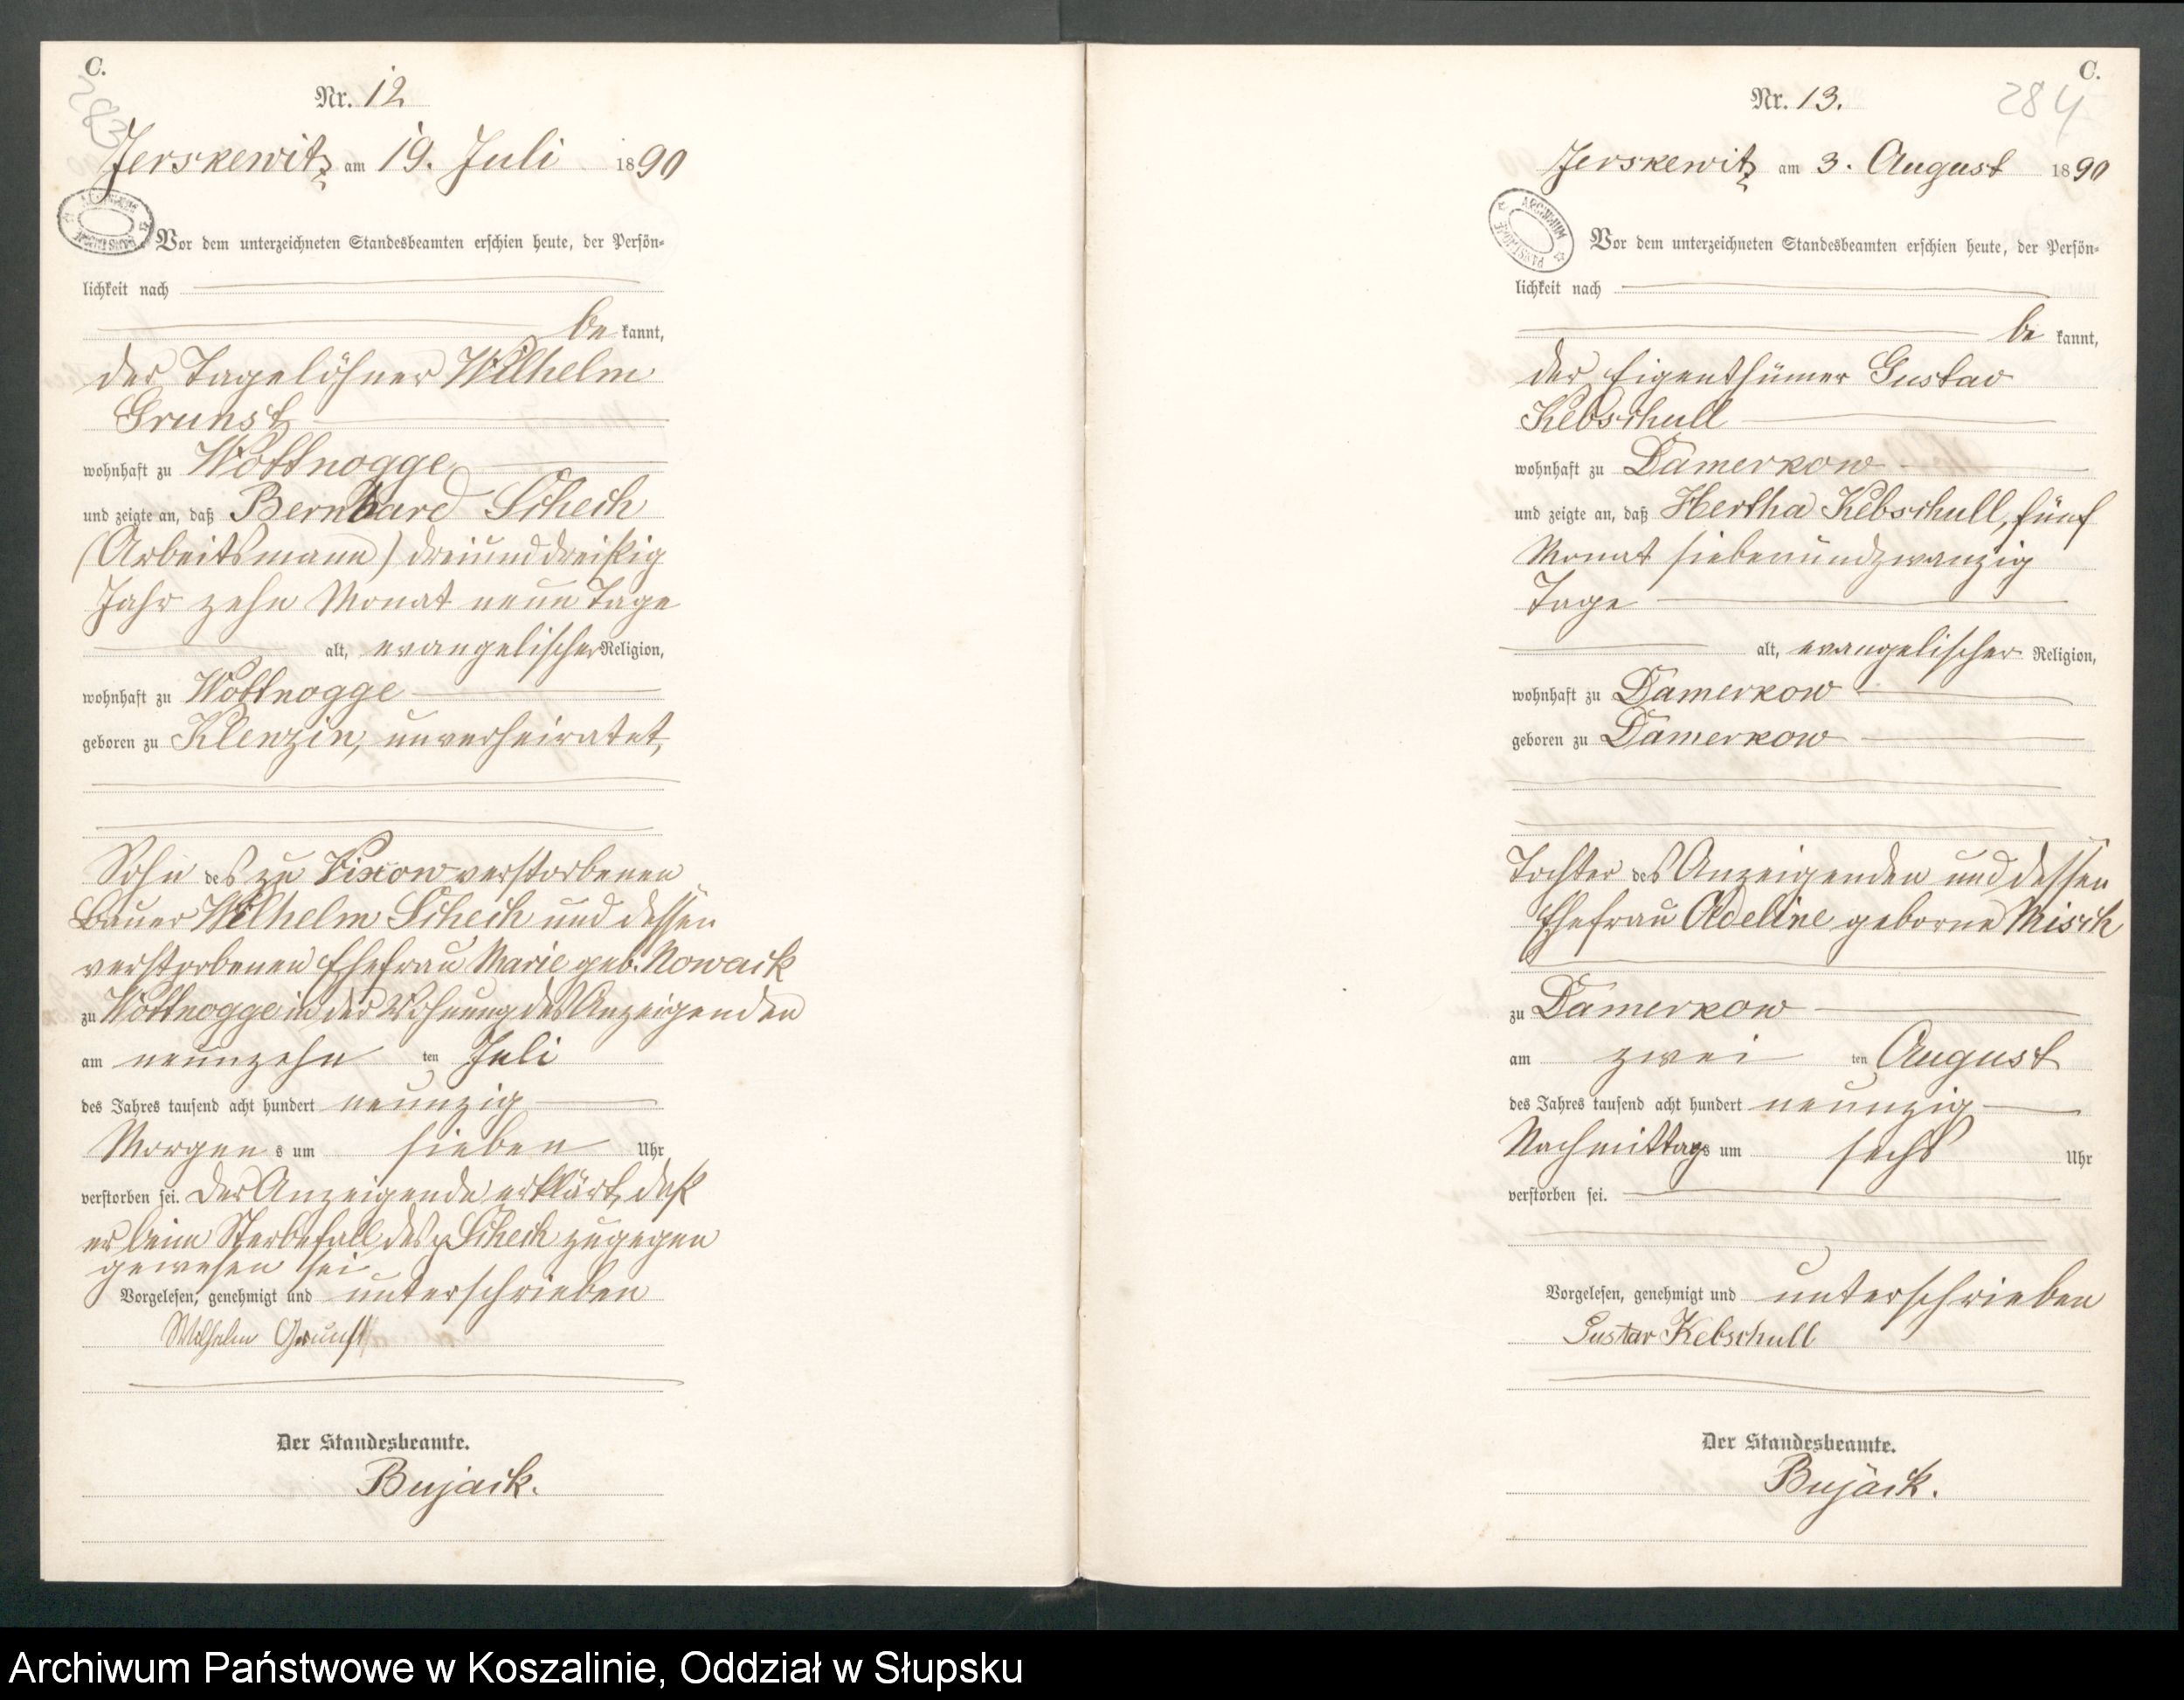 C.
283
Nr. 12
Jerskewitz am 19. Juli 1890
ARCHIWUM PAŃSTWOWE
Vor dem unterzeichneten Standesbeamten erschien heute, der Persön-
lichkeit nach
be kannt,
der Tagelöhner Wilhelm
Grunst
wohnhaft zu Wottnogge
und zeigte an, daß Bernhard Scheck
(Arbeitsmann) dreiunddreißig
Jahr zehn Monat neun Tage
alt, evangelischer Religion,
wohnhaft zu Wottnogge
geboren zu Klenzin, unverheiratet,
Sohn des zu Vixow verstorbenen
Bauer Wilhelm Scheck und dessen
verstorbenen Ehefrau Marie geb. Nowack
zu Wottnogge in der Wohnung des Anzeigenden
am neunzehn ten Juli
des Jahres tausend acht hundert neunzig
Morgens um sieben Uhr
verstorben sei. Der Anzeigende erklärt, daß
er beim Sterbefall des Scheck zugegen
gewesen sei
Vorgelesen, genehmigt und unterschrieben
Wilhelm Grunst
Der Standesbeamte.
Bujack.
C.
284
Nr. 13.
Jerskewitz am 3. August 1890
ARCHIWUM PAŃSTWOWE
Vor dem unterzeichneten Standesbeamten erschien heute, der Persön-
lichkeit nach
be kannt,
der Eigenthümer Gustav
Kebschull
wohnhaft zu Damerkow
und zeigte an, daß Hertha Kebschull, fünf
Monat siebenundzwanzig
Tage
alt, evangelischer Religion,
wohnhaft zu Damerkow
geboren zu Damerkow
Tochter des Anzeigenden und dessen
Ehefrau Adeline geborne Misch
zu Damerkow
am zwei ten August
des Jahres tausend acht hundert neunzig
Nachmittags um sechs Uhr
verstorben sei.
Vorgelesen, genehmigt und unterschrieben
Gustav Kebschull
Der Standesbeamte.
Bujack.
Archiwum Państwowe w Koszalinie, Oddział w Słupsku